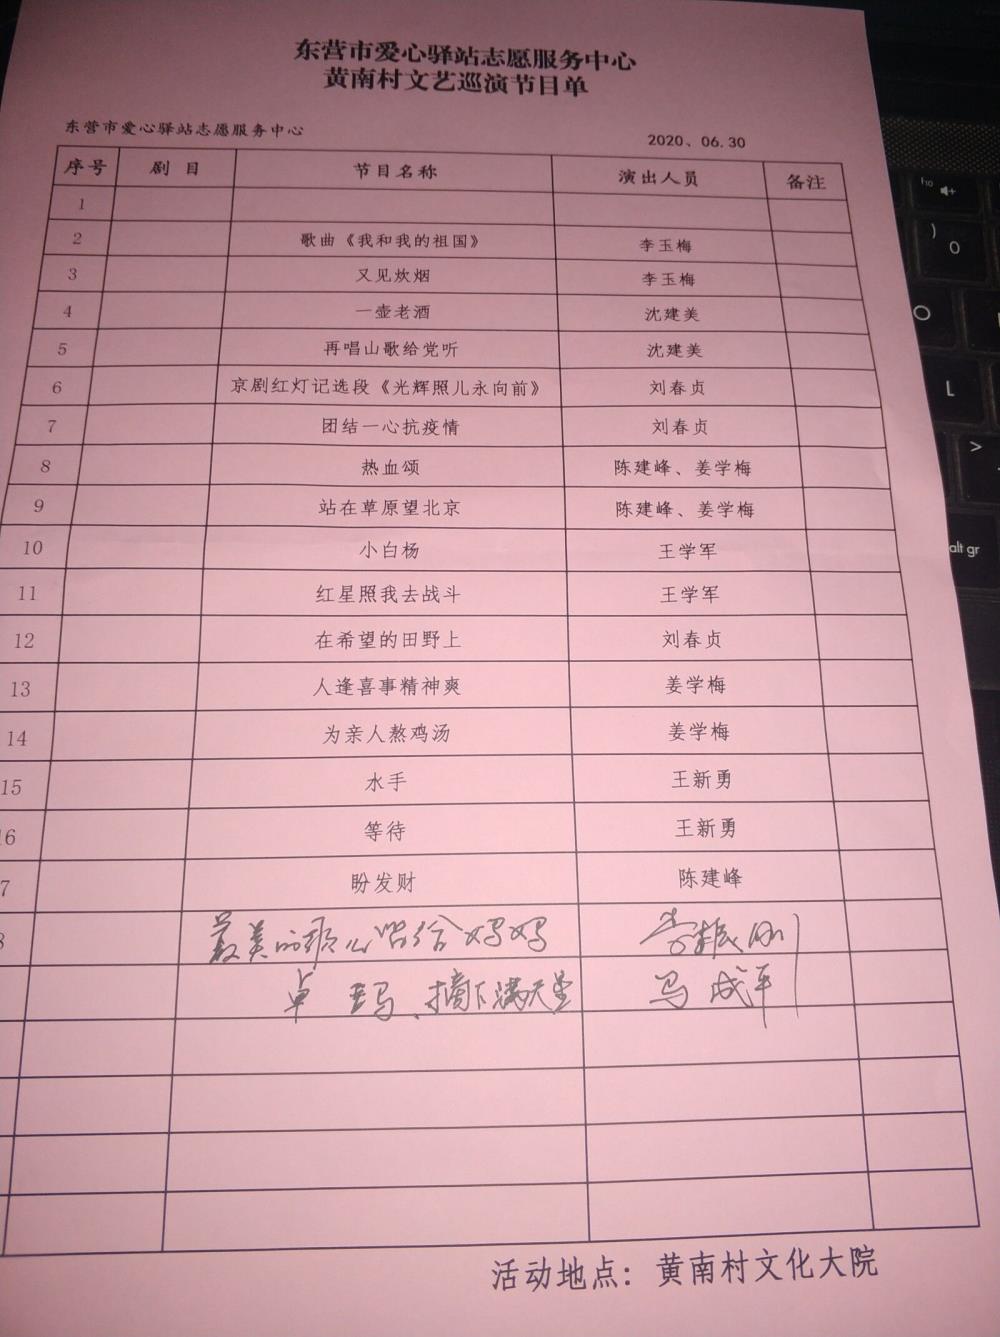 东营市爱心驿站志愿服务中心
黄南村文艺巡演节目单
东营市爱心驿站志愿服务中心 2020、06.30
序号 剧 目 节目名称 演出人员 备注
1
2 歌曲《我和我的祖国》 李玉梅
3 又见炊烟 李玉梅
4 一壶老酒 沈建美
5 再唱山歌给党听 沈建美
6 京剧红灯记选段《光辉照儿永向前》 刘春贞
7 团结一心抗疫情 刘春贞
8 热血颂 陈建峰、姜学梅
9 站在草原望北京 陈建峰、姜学梅
10 小白杨 王学军
11 红星照我去战斗 王学军
12 在希望的田野上 刘春贞
13 人逢喜事精神爽 姜学梅
14 为亲人熬鸡汤 姜学梅
15 水手 王新勇
16 等待 王新勇
7 盼发财 陈建峰
8 最美的歌儿唱给妈妈 李振刚
卓玛、摘下满天星 马成平
活动地点：黄南村文化大院
h10
)
0
O
L
>
alt gr